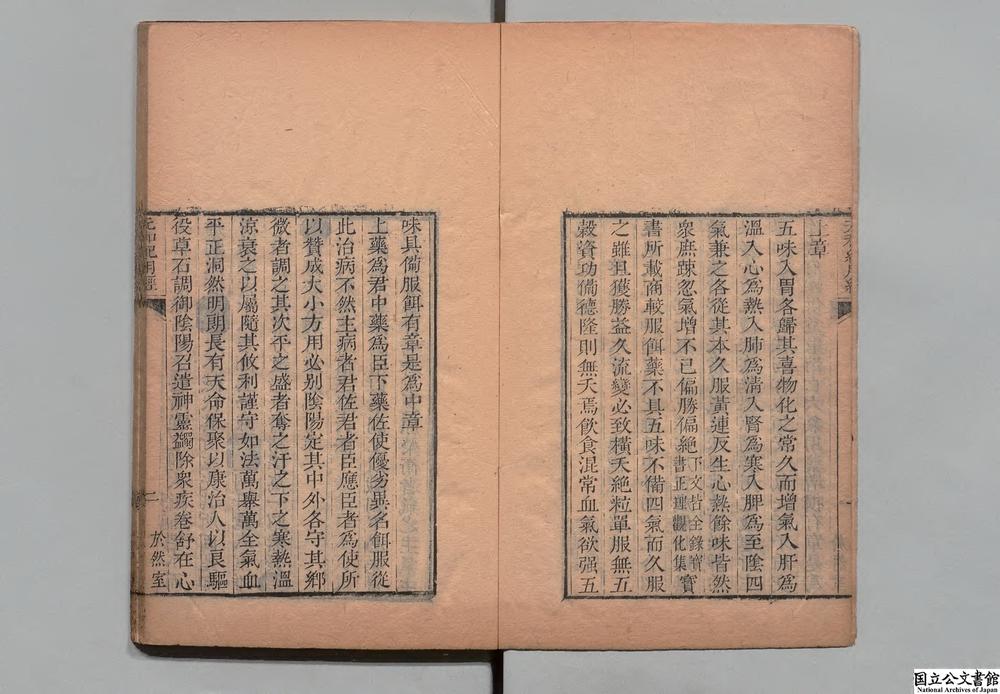 上章
五味入胃各歸其喜物化之常久而增氣入肝為
溫入心為熱入肺為清入腎為寒入脾為至陰四
氣兼之各從其本久服黃連反生心熱餘味皆然
衆庶疎忽氣增不已偏勝偏絕下文皆全錄寶書正理觀化集寶
書所載商較服餌藥不具五味不備四氣而久服
之雖且獲勝益久流變必致橫夭絕粒單服無五
穀資功備德隆則無夭焉飲食混常血氣欲强五
味具備服餌有章是為中章
上藥為君中藥為臣下藥佐使優劣異名餌服從
此治病不然主病者君佐君者臣應臣者為使所
以贊成大小方用必別陰陽定其中外各守其鄉
微者調之其次平之盛者奪之汗之下之寒熱溫
涼衰之以屬隨其攸利謹守如法萬舉萬全氣血
平正洞然明朗長有天命保聚以康治人以良驅
役草石調御陰陽召遣神靈蠲除衆疾卷舒在心
元和紀用經
二
於然室
国立公文書館
National Archives of Japan